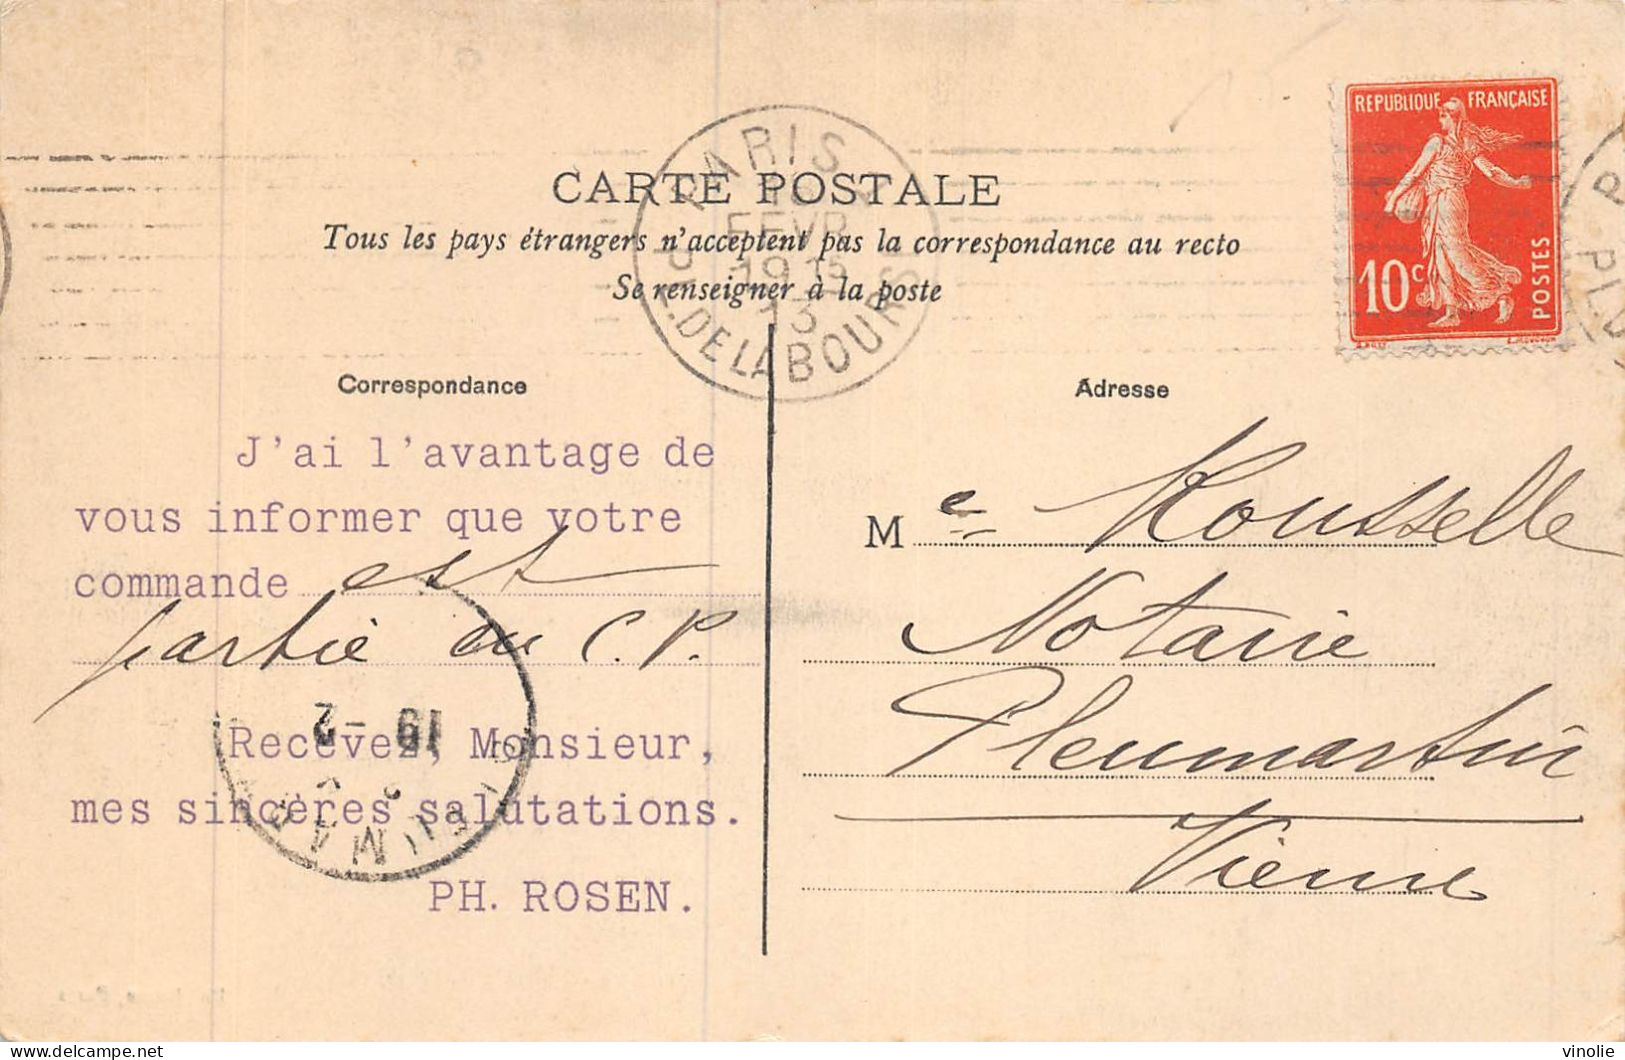 CARTE POSTALE
Tous les pays étrangers n'acceptent pas la correspondance au recto
Se renseigner à la poste
REPUBLIQUE FRANÇAISE
10c POSTES
PARIS
FEVR
13
PL. DE LA BOURSE
Correspondance
J'ai l'avantage de
vous informer que votre
commande est
partie en C.P.
Recevez, Monsieur,
mes sincères salutations.
PH. ROSEN.
19 -2
Adresse
Me Rousselle
Notaire
Pleumartin
Vienne
delcampe.net
vinolie